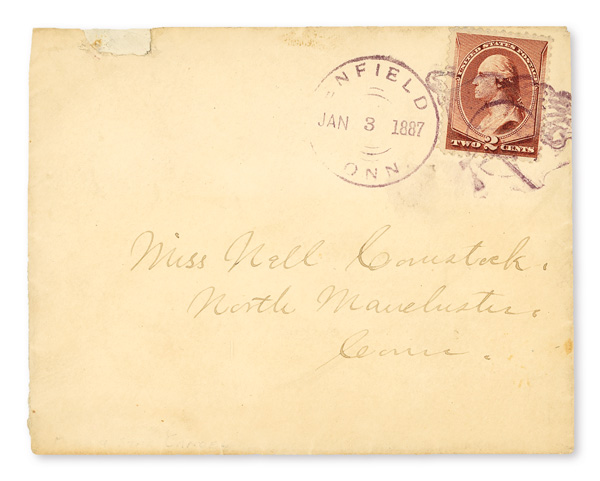 ENFIELD
JAN 3 1887
CONN.
UNITED STATES POSTAGE
TWO 2 CENTS
Miss Nell Comstock.
North Manchester.
Conn.